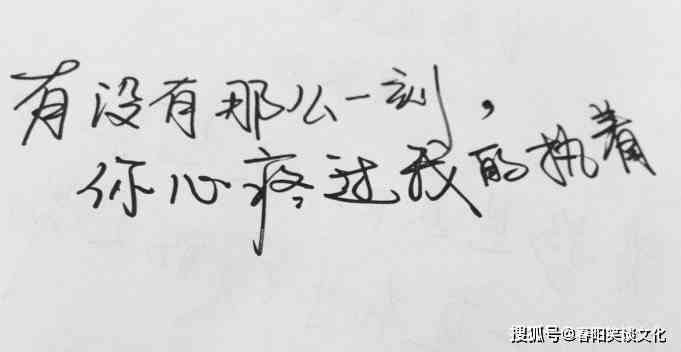 有没有那么一刻，
你心疼过我的执着
搜狐号@春阳笑谈文化